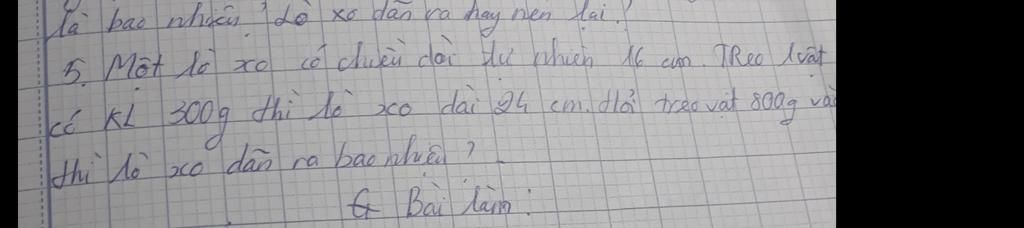 là bao nhiêu? Lò xo dãn ra hay nén lại?
5. Một lò xo có chiều dài tự nhiên 16 cm. TReo 1 vật
có KL 300g thì lò xo dài 24 cm. Hỏi treo vật 800g và
thì lò xo dãn ra bao nhiêu?
Bài làm: